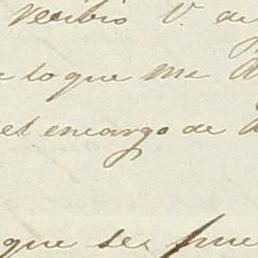 recibió V. de
lo que me
el encargo de
que se